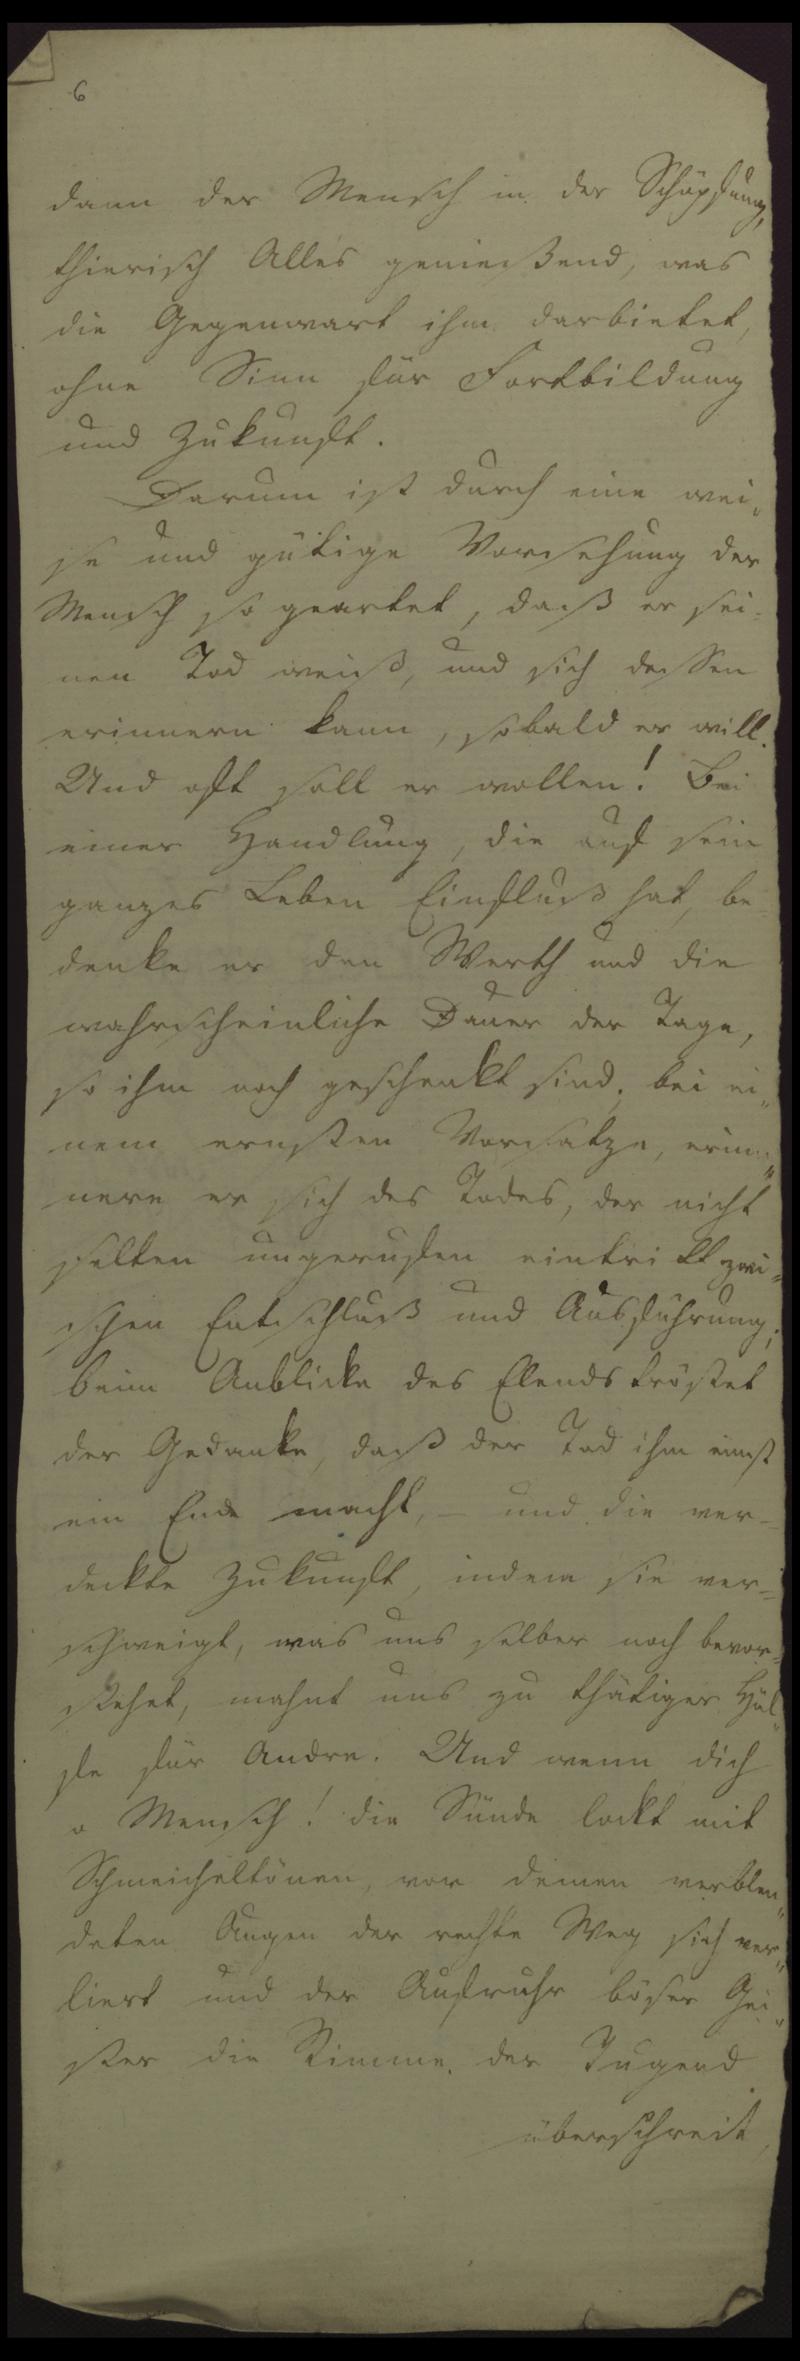 6
dann der Mensch in der Schöpfung,
thierisch Alles genießend, was
die Gegenwart ihm darbietet,
ohne Sinn für Fortbildung
und Zukunft.
Darum ist durch eine wei„
se und gütige Vorsehung der
Mensch so geartet, daß er sei=
nen Tod weiß, und sich dessen
erinnern kann, sobald er will.
Und oft soll er wollen! Bei
einer Handlung, die auf sein
ganzes Leben Einfluß hat, be=
denke er den Werth und die
wahrscheinliche Dauer der Tage,
so ihm noch geschenkt sind; bei ei„
nem ernsten Vorsatze, erin„
nere er sich des Todes, der nicht
selten ungerufen eintritt zwi„
schen Entschluß und Ausführung;
beim Anblicke des Elends tröstet
der Gedanke, daß der Tod ihm einst
ein Ende macht, – und die ver=
deckte Zukunft, indem sie ver=
schweigt, was uns selber noch bevor=
stehet, mahnt uns zu thätiger Hül„
fe für Andre. Und wenn dich
o Mensch! die Sünde lockt mit
Schmeicheltönen, vor deinen verblen„
deten Augen der rechte Weg sich ver„
liert und der Aufruhr böser Gei„
ster die Stimme der Tugend
überschreit,